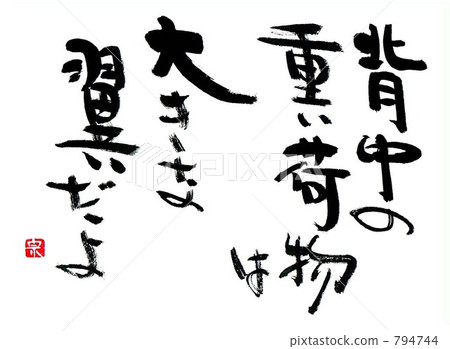 背中の
重い荷物
は
大きな
翼だよ
pixta.jp - 794744